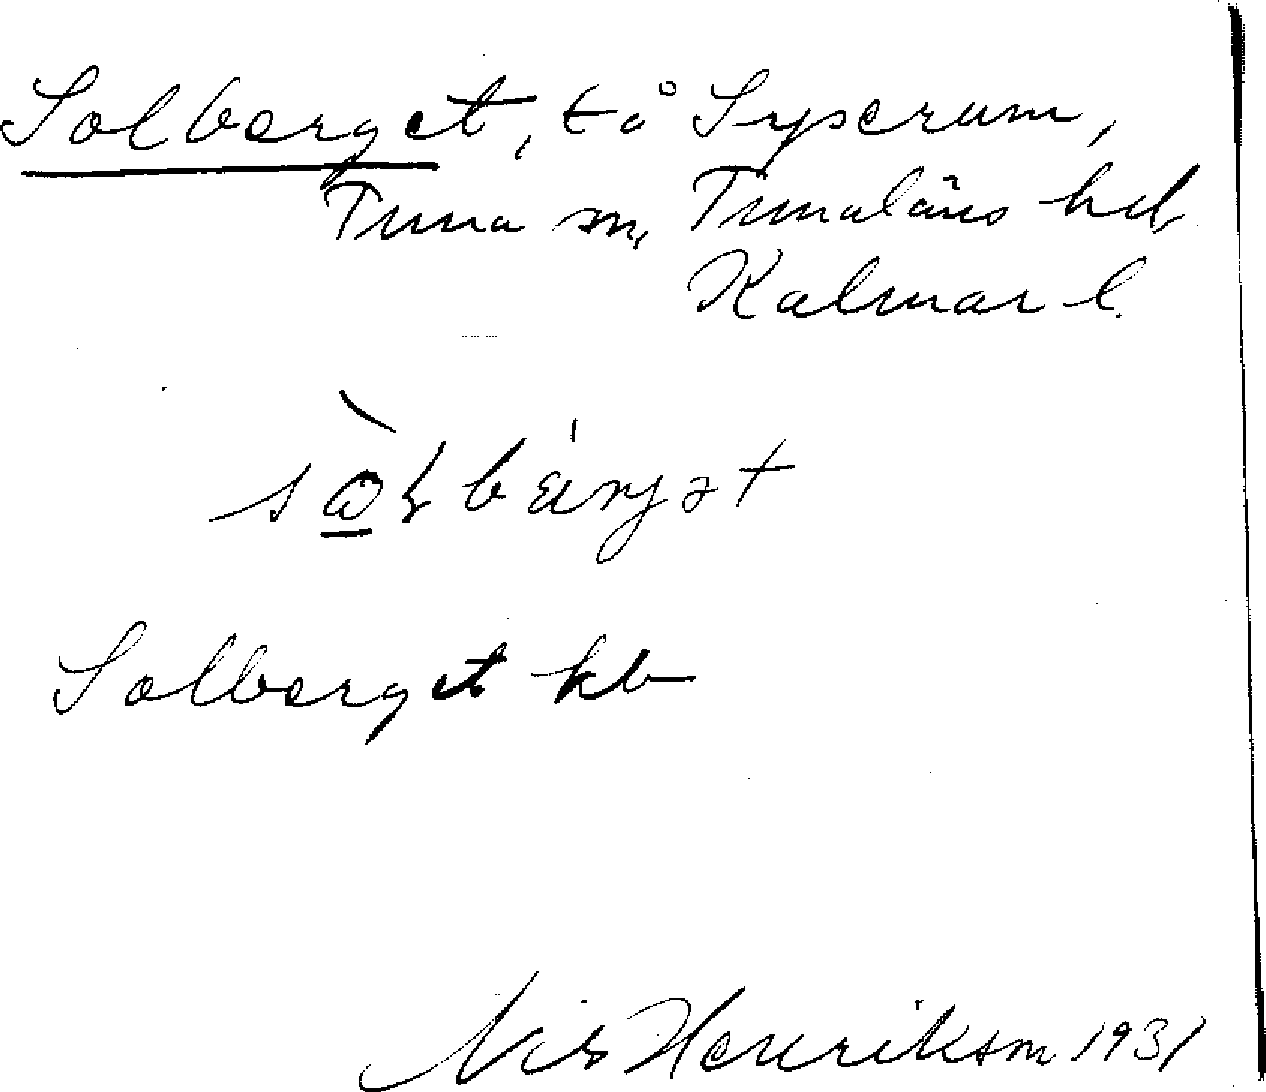 Solberget, t å Syserum,
Tuna sn, Tunaläns hd
Kalmar l.
Solberget kb
Nils Henrikson 1931